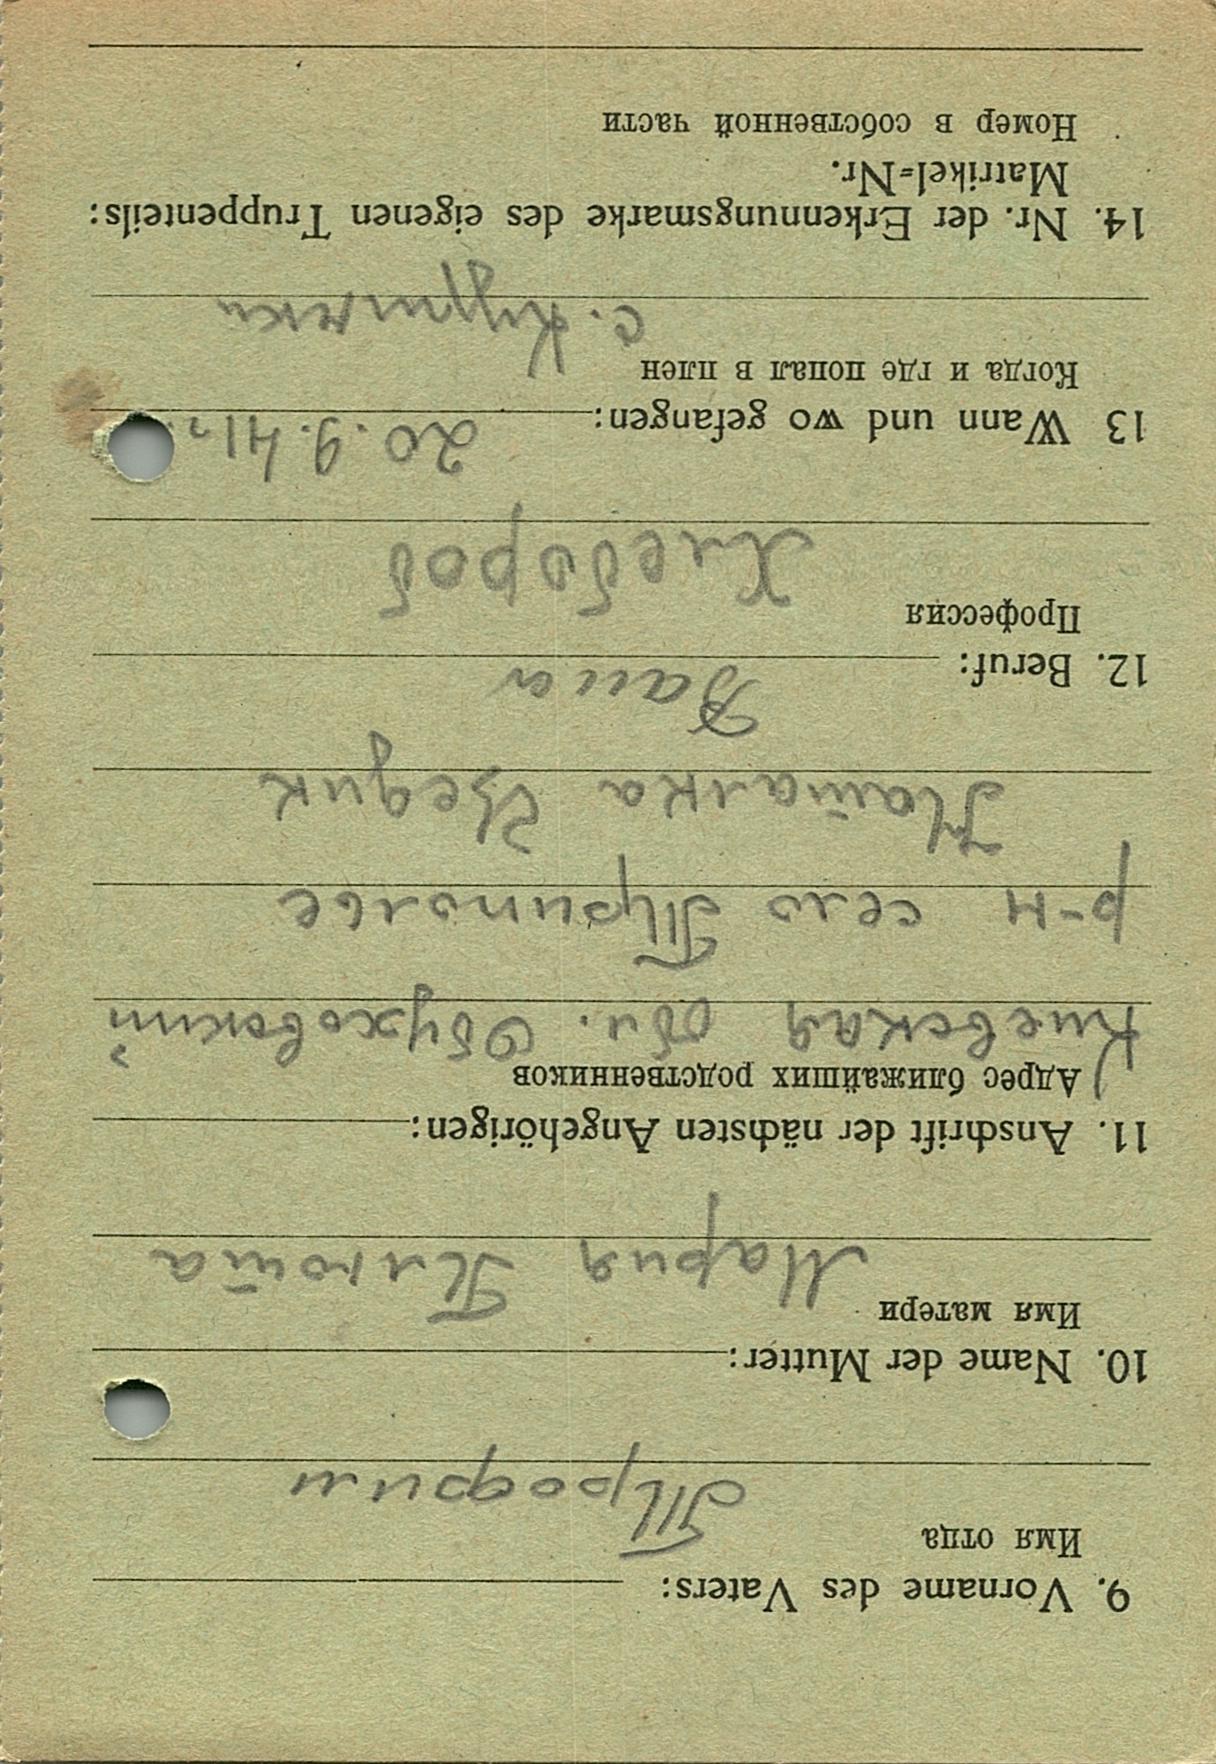 9. Vorname des Vaters:
Имя отца
Трофим
10. Name der Mutter:
Имя матери
Мария Плюта
11. Anschrift der nächsten Angehörigen:
Адрес ближайших родственников
Киевская обл. Обуховский
р-н село Триполье
Наталка Чведик
Ваша
12. Beruf:
Профессия
Хлебороб
13 Wann und wo gefangen: 20.9.41г.
Когда и где попал в плен
с.
14. Nr. der Erkennungsmarke des eigenen Truppenteils:
Matrikel=Nr.
Номер в собственной части